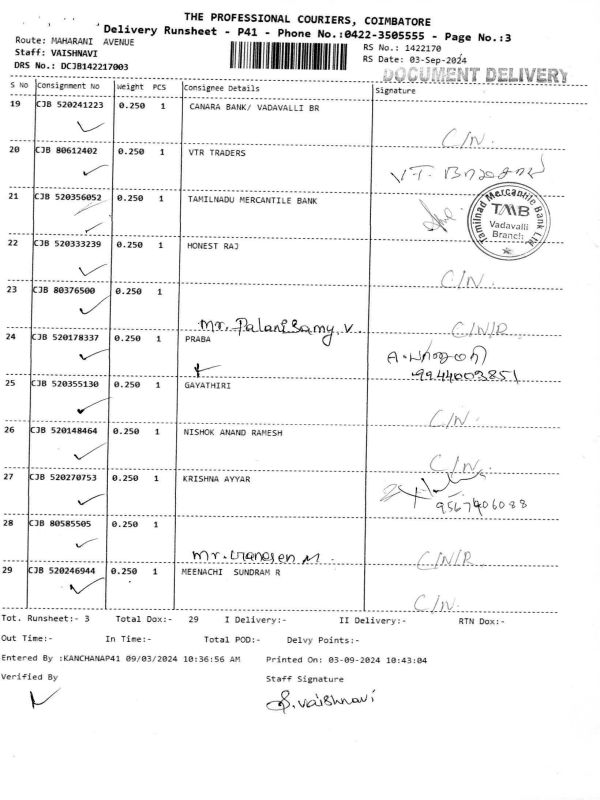 THE PROFESSIONAL COURIERS, COIMBATORE
Delivery Runsheet - P41 - Phone No.:0422-3505555 - Page No.:3
Route: MAHARANI AVENUE
RS No.: 1422170
Staff: VAISHNAVI
RS Date: 03-Sep-2024
DRS No.: DCJB142217003
DOCUMENT DELIVERY
S No Consignment No Weight PCS Consignee Details Signature
19 CJB 520241223 0.250 1 CANARA BANK/ VADAVALLI BR
C/N.
20 CJB 80612402 0.250 1 VTR TRADERS
21 CJB 520356052 0.250 1 TAMILNADU MERCANTILE BANK
Tamilnad Mercantile Bank Ltd
TMB
Vadavalli
Branch
22 CJB 520333239 0.250 1 HONEST RAJ
C/N.
23 CJB 80376500 0.250 1
Mr. Palanisamy. V C/N/R
24 CJB 520178337 0.250 1 PRABA
9944003851
25 CJB 520355130 0.250 1 GAYATHIRI
C/N.
26 CJB 520148464 0.250 1 NISHOK ANAND RAMESH
C/N.
27 CJB 520270753 0.250 1 KRISHNA AYYAR
9567406088
28 CJB 80585505 0.250 1
Mr. Ganesen M. C/N/R
29 CJB 520246944 0.250 1 MEENACHI SUNDRAM R
C/N.
Tot. Runsheet:- 3 Total Dox:- 29 I Delivery:- II Delivery:- RTN Dox:-
Out Time:- In Time:- Total POD:- Delvy Points:-
Entered By :KANCHANAP41 09/03/2024 10:36:56 AM Printed On: 03-09-2024 10:43:04
Verified By Staff Signature
S. Vaishnavi